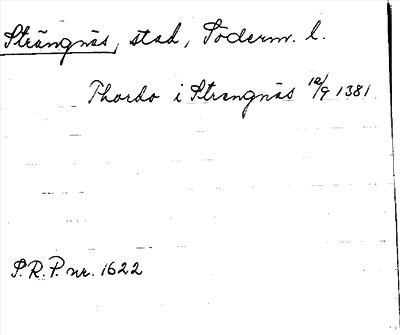 Strängnäs, stad, Söderm. l.
Thordo i Strengnäs 10/9 1381.
S.R.P. nr. 1622